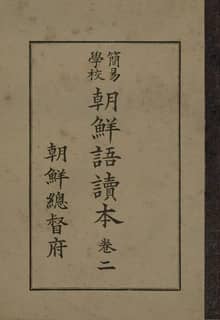 簡易學校 朝鮮語讀本 卷二
朝鮮總督府